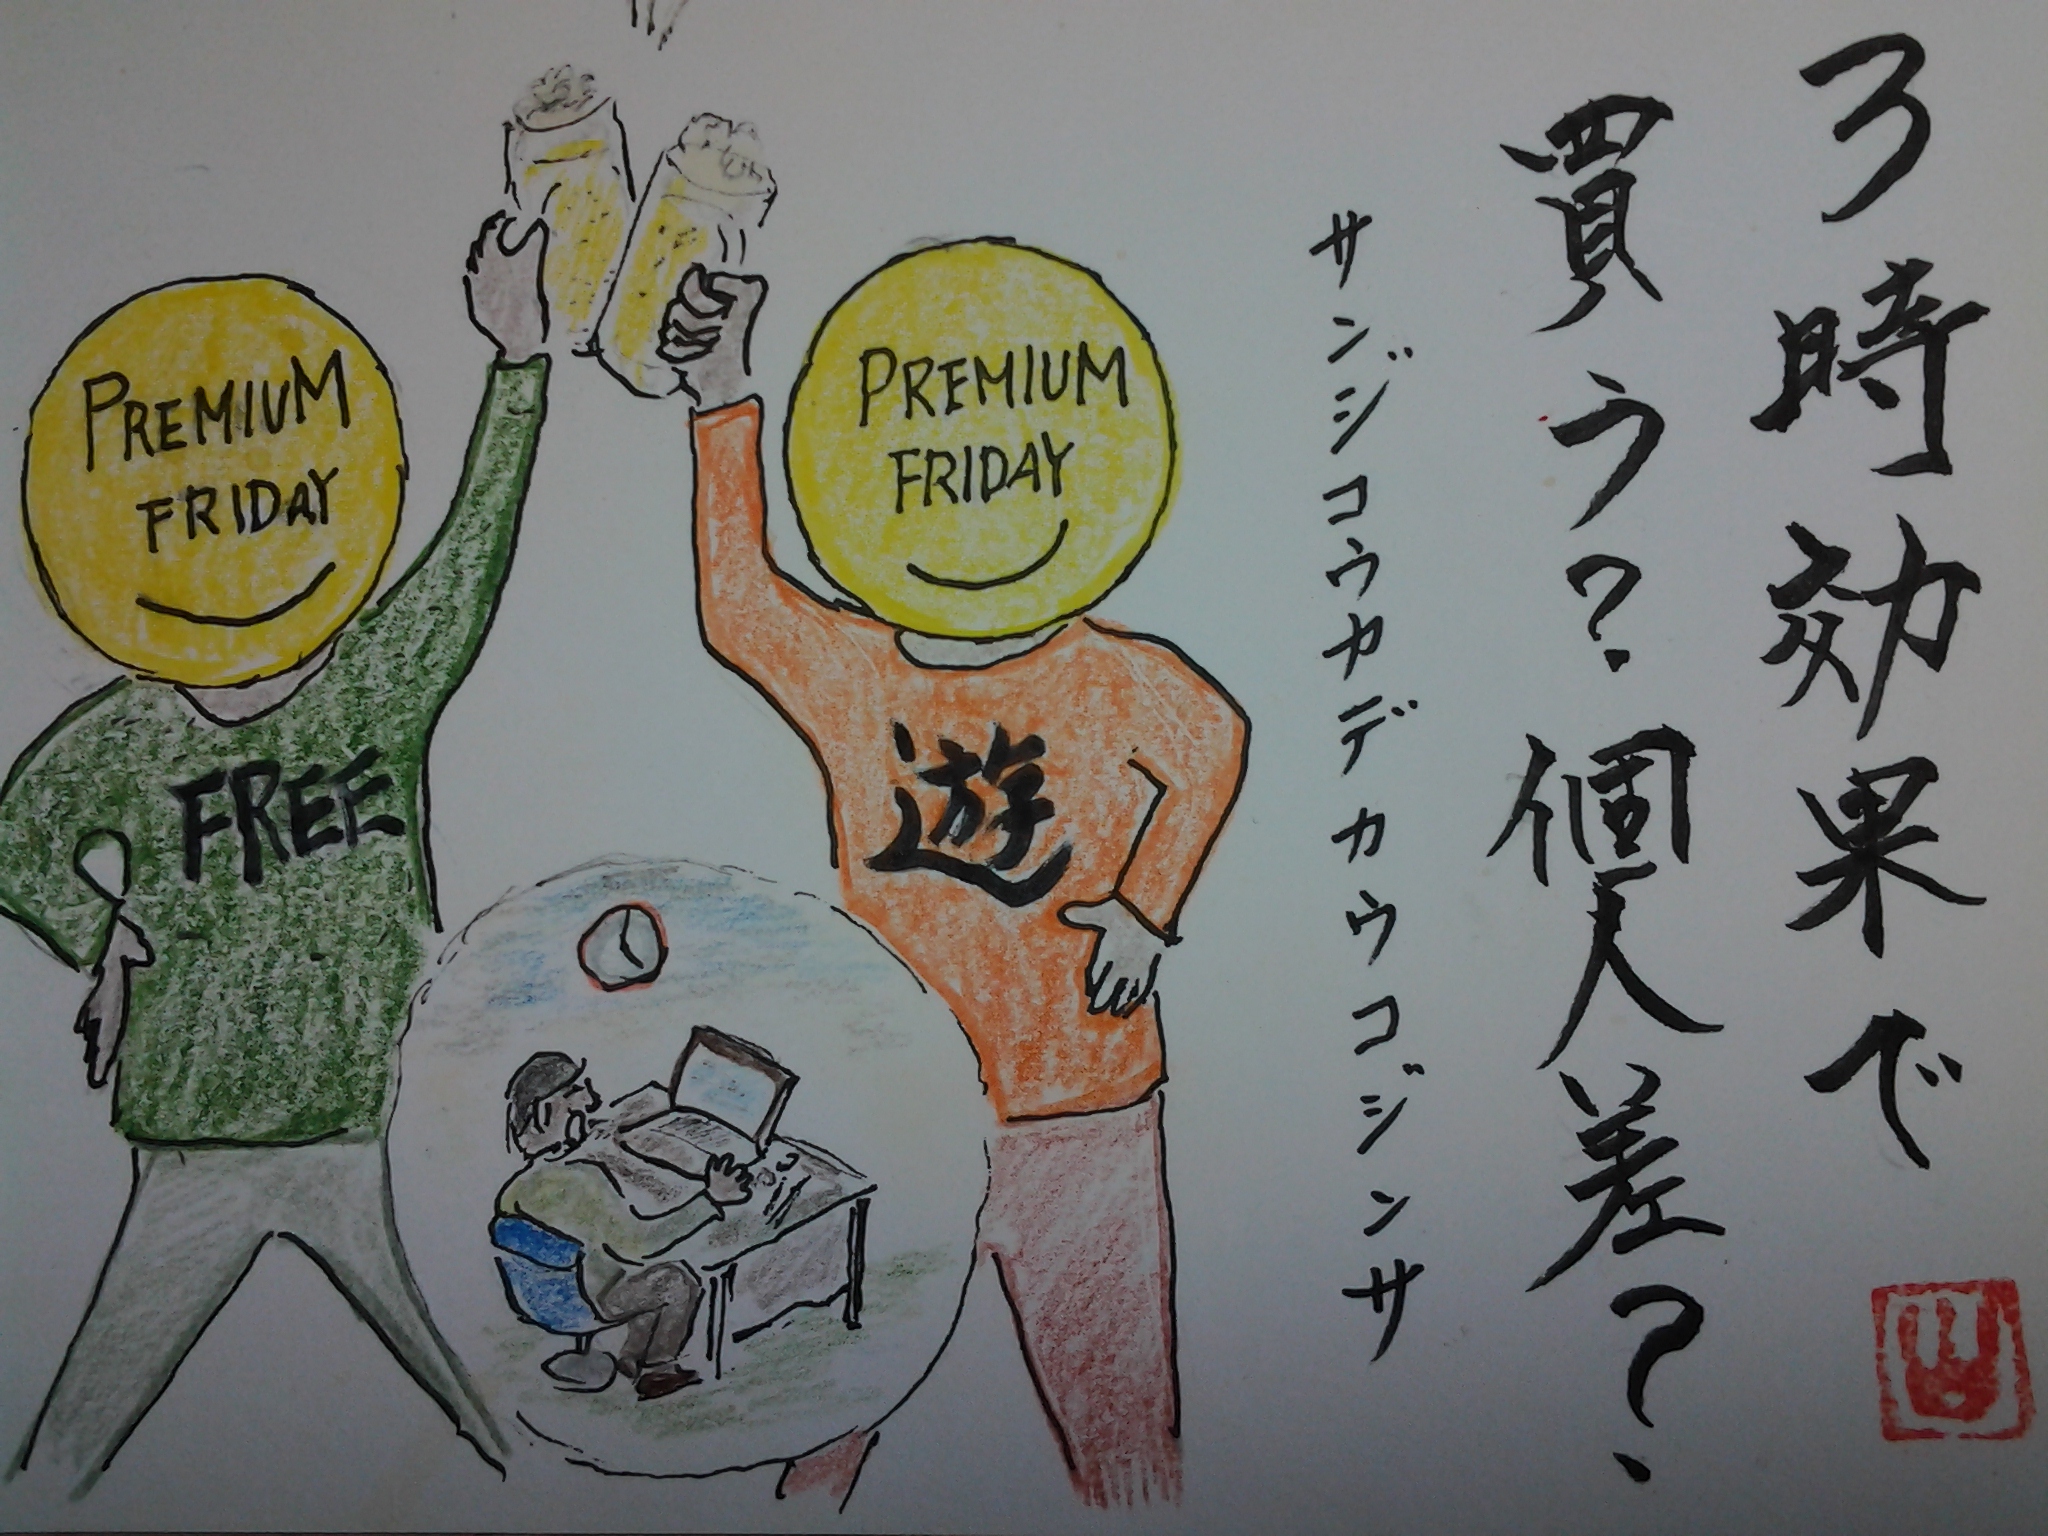 3時効果で
買う?個人差?
サンジコウカデカウコジンサ
PREMIUM
FRIDAY
遊
PREMIUM
FRIDAY
FREE